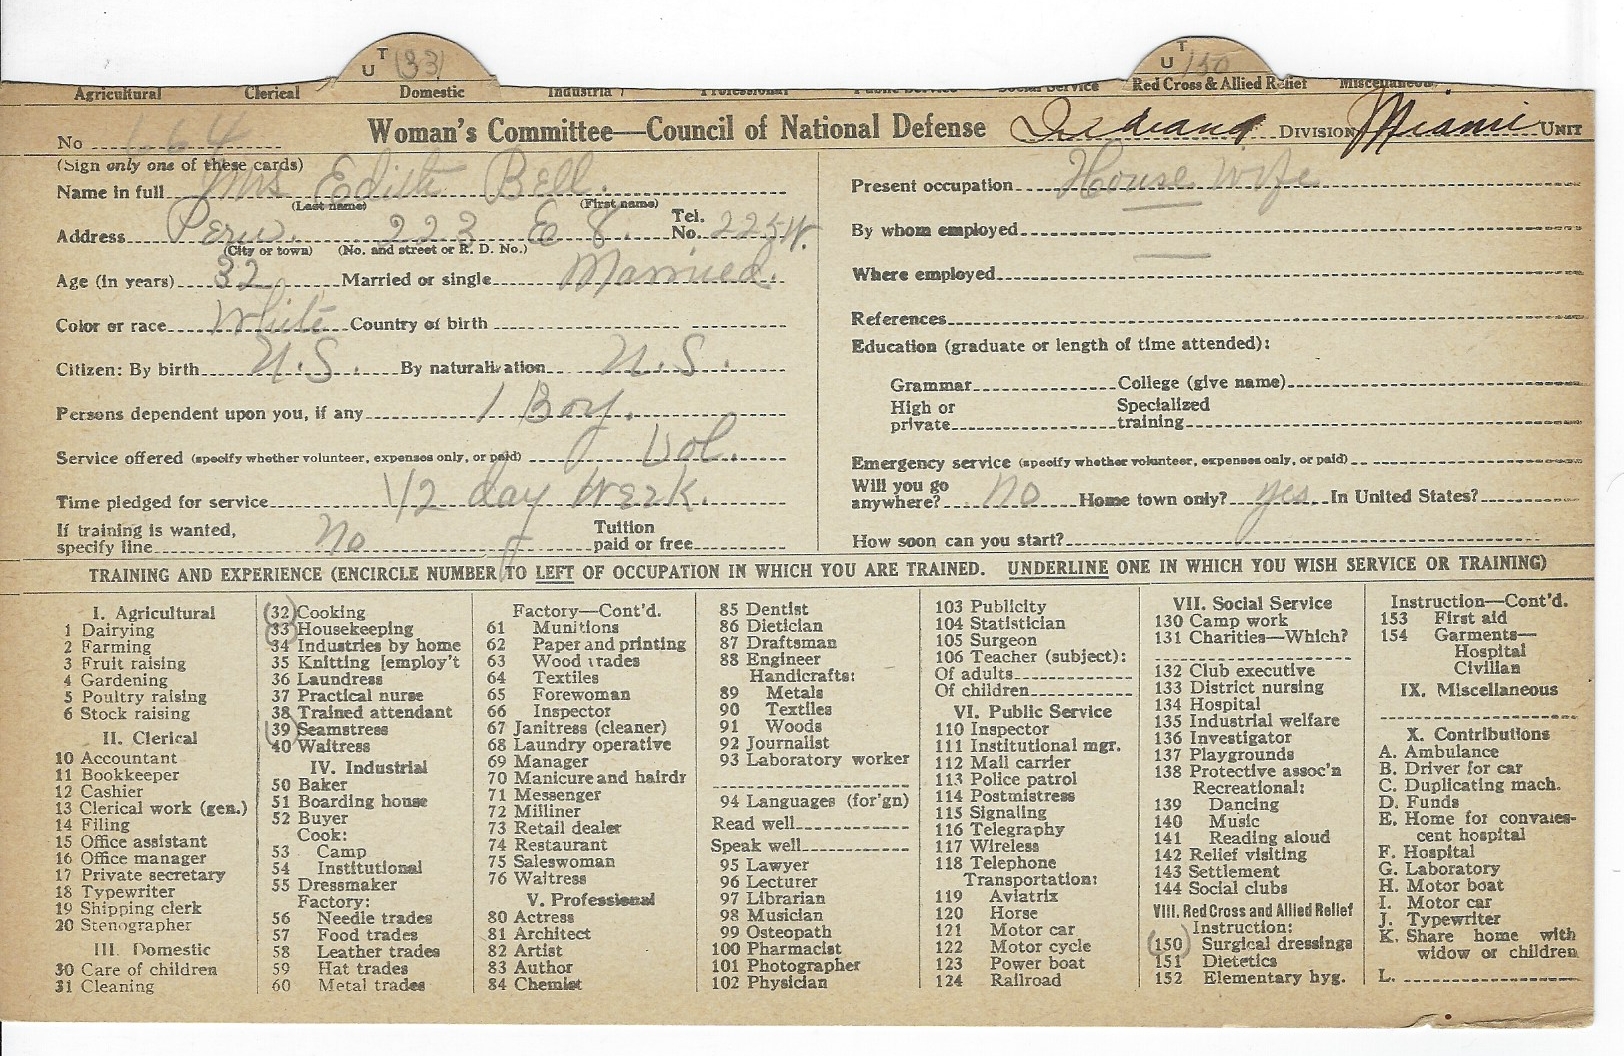 T
U (33)
T
U 150
Agricultural Clerical Domestic Industrial Professional Public Service Social Service Red Cross & Allied Relief Miscellaneous
No 664 Woman's Committee—Council of National Defense Indiana DIVISION Miami UNIT
(Sign only one of these cards)
Name in full Mrs Edith Bell.
(Last name) (First name)
Address Peru. 223 E 8. Tel. No. 2234.
(City or town) (No. and street or R. D. No.)
Age (in years) 32 Married or single Married.
Color or race White Country of birth
Citizen: By birth U.S. By naturalization U.S.
Persons dependent upon you, if any 1 Boy.
Service offered (specify whether volunteer, expenses only, or paid) Vol.
Time pledged for service 1/2 day week.
If training is wanted,
specify line No Tuition paid or free
Present occupation House wife
By whom employed
Where employed
References
Education (graduate or length of time attended):
Grammar College (give name)
High or private Specialized training
Emergency service (specify whether volunteer, expenses only, or paid)
Will you go
anywhere? No Home town only? yes In United States?
How soon can you start?
TRAINING AND EXPERIENCE (ENCIRCLE NUMBER TO LEFT OF OCCUPATION IN WHICH YOU ARE TRAINED. UNDERLINE ONE IN WHICH YOU WISH SERVICE OR TRAINING)
I. Agricultural
1 Dairying
2 Farming
3 Fruit raising
4 Gardening
5 Poultry raising
6 Stock raising
II. Clerical
10 Accountant
11 Bookkeeper
12 Cashier
13 Clerical work (gen.)
14 Filing
15 Office assistant
16 Office manager
17 Private secretary
18 Typewriter
19 Shipping clerk
20 Stenographer
III. Domestic
30 Care of children
31 Cleaning
(32) Cooking
(33) Housekeeping
34 Industries by home
35 Knitting [employ't
36 Laundress
37 Practical nurse
38 Trained attendant
(39) Seamstress
40 Waitress
IV. Industrial
50 Baker
51 Boarding house
52 Buyer
Cook:
53 Camp
54 Institutional
55 Dressmaker
Factory:
56 Needle trades
57 Food trades
58 Leather trades
59 Hat trades
60 Metal trades
Factory—Cont'd.
61 Munitions
62 Paper and printing
63 Wood trades
64 Textiles
65 Forewoman
66 Inspector
67 Janitress (cleaner)
68 Laundry operative
69 Manager
70 Manicure and hairdr
71 Messenger
72 Milliner
73 Retail dealer
74 Restaurant
75 Saleswoman
76 Waitress
V. Professional
80 Actress
81 Architect
82 Artist
83 Author
84 Chemist
85 Dentist
86 Dietician
87 Draftsman
88 Engineer
Handicrafts:
89 Metals
90 Textiles
91 Woods
92 Journalist
93 Laboratory worker
94 Languages (for'gn)
Read well
Speak well
95 Lawyer
96 Lecturer
97 Librarian
98 Musician
99 Osteopath
100 Pharmacist
101 Photographer
102 Physician
103 Publicity
104 Statistician
105 Surgeon
106 Teacher (subject):
Of adults
Of children
VI. Public Service
110 Inspector
111 Institutional mgr.
112 Mail carrier
113 Police patrol
114 Postmistress
115 Signaling
116 Telegraphy
117 Wireless
118 Telephone
Transportation:
119 Aviatrix
120 Horse
121 Motor car
122 Motor cycle
123 Power boat
124 Railroad
VII. Social Service
130 Camp work
131 Charities—Which?
132 Club executive
133 District nursing
134 Hospital
135 Industrial welfare
136 Investigator
137 Playgrounds
138 Protective assoc'n
Recreational:
139 Dancing
140 Music
141 Reading aloud
142 Relief visiting
143 Settlement
144 Social clubs
VIII. Red Cross and Allied Relief
Instruction:
(150) Surgical dressings
151 Dietetics
152 Elementary hyg.
Instruction—Cont'd.
153 First aid
154 Garments—
Hospital
Civilian
IX. Miscellaneous
X. Contributions
A. Ambulance
B. Driver for car
C. Duplicating mach.
D. Funds
E. Home for convales-
cent hospital
F. Hospital
G. Laboratory
H. Motor boat
I. Motor car
J. Typewriter
K. Share home with
widow or children
L.